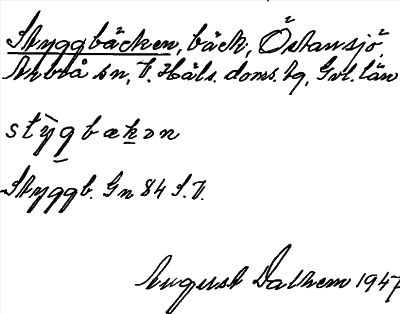 Styggbäcken, bäck, Östansjö,
Arbrå sn, V. Häls. doms. tg, Gvl. län
stygbækən
Styggb. Gn 84 S.V.
August Dalhem 1947